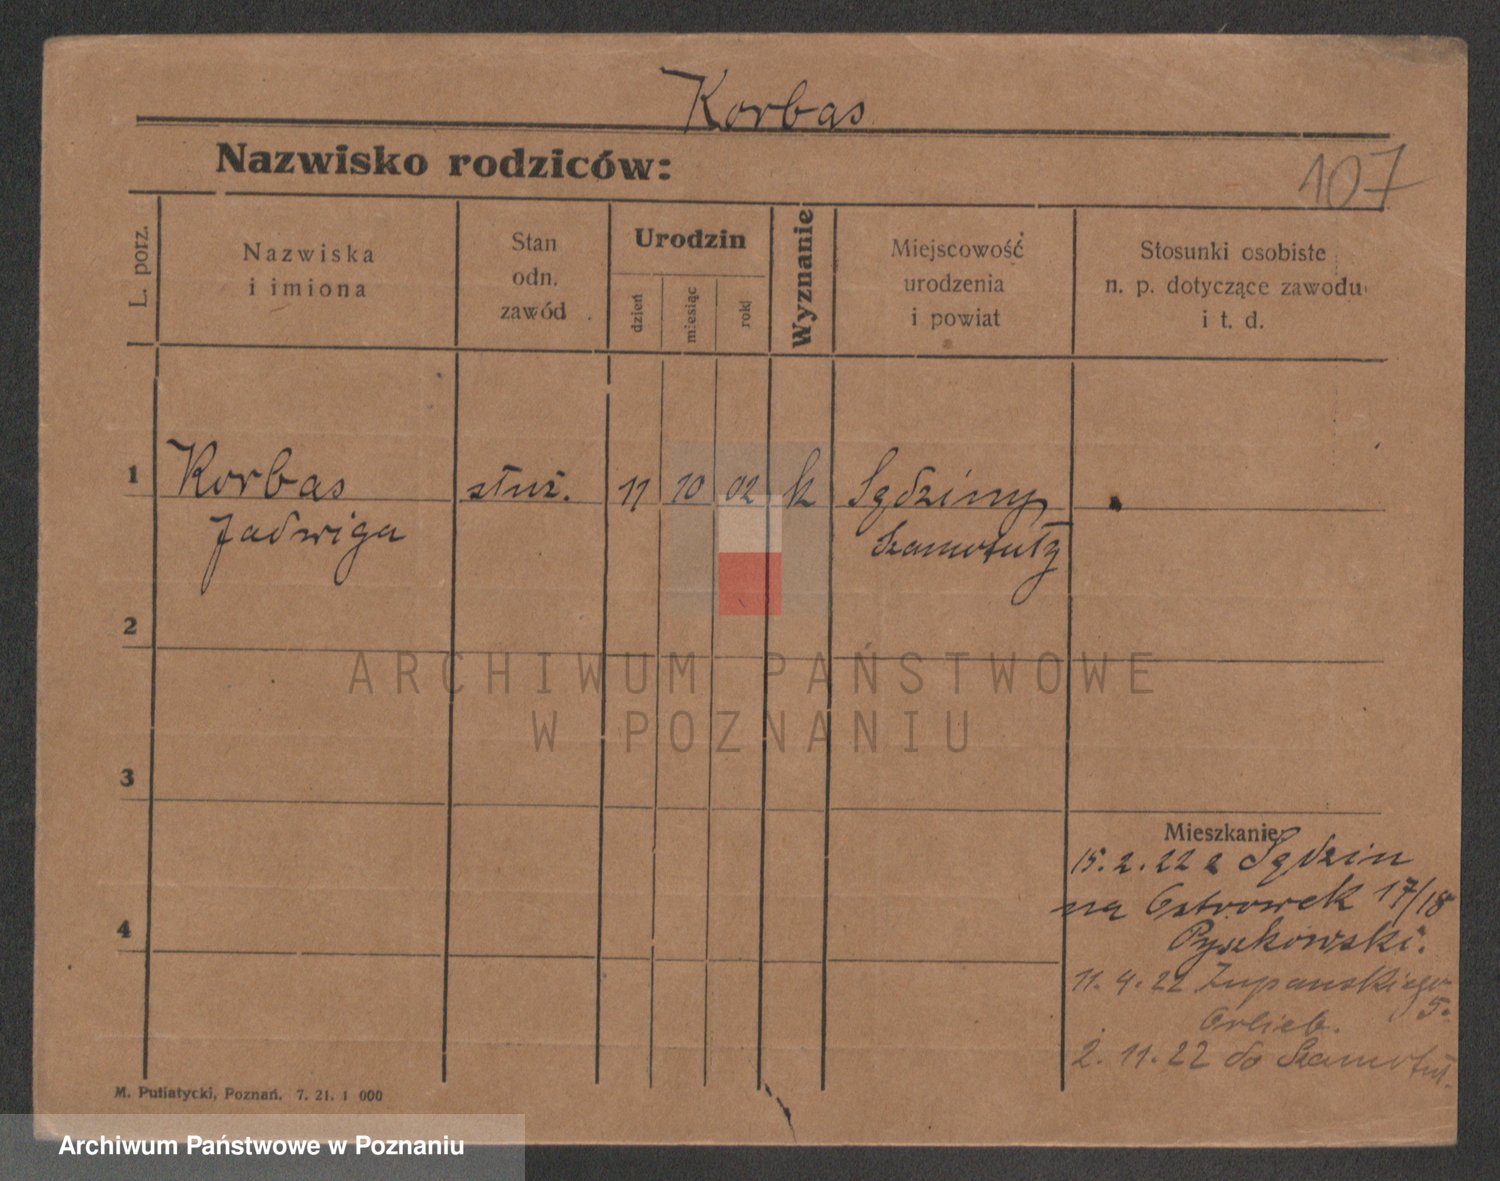 Korbas
Nazwisko rodziców:
107
L. porz.
Nazwiska
i imiona
Stan
odn.
zawód
Urodzin
dzień
miesiąc
rok
Wyznanie
Miejscowość
urodzenia
i powiat
Stosunki osobiste
n. p. dotyczące zawodu
i t. d.
1
Korbas
Jadwiga
służ.
11
10
02
k
Sędziny
Szamotuły
2
ARCHIWUM PAŃSTWOWE
W POZNANIU
3
Mieszkanie:
15.2.22 z Sędzin
na Ostrowek 17/18
Pyszkowski.
11.4.22 Żupanskiego
5.
Orlieb.
2.11.22 do Szamotuł.
4
M. Putiatycki, Poznań. 7. 21. 1 000
Archiwum Państwowe w Poznaniu